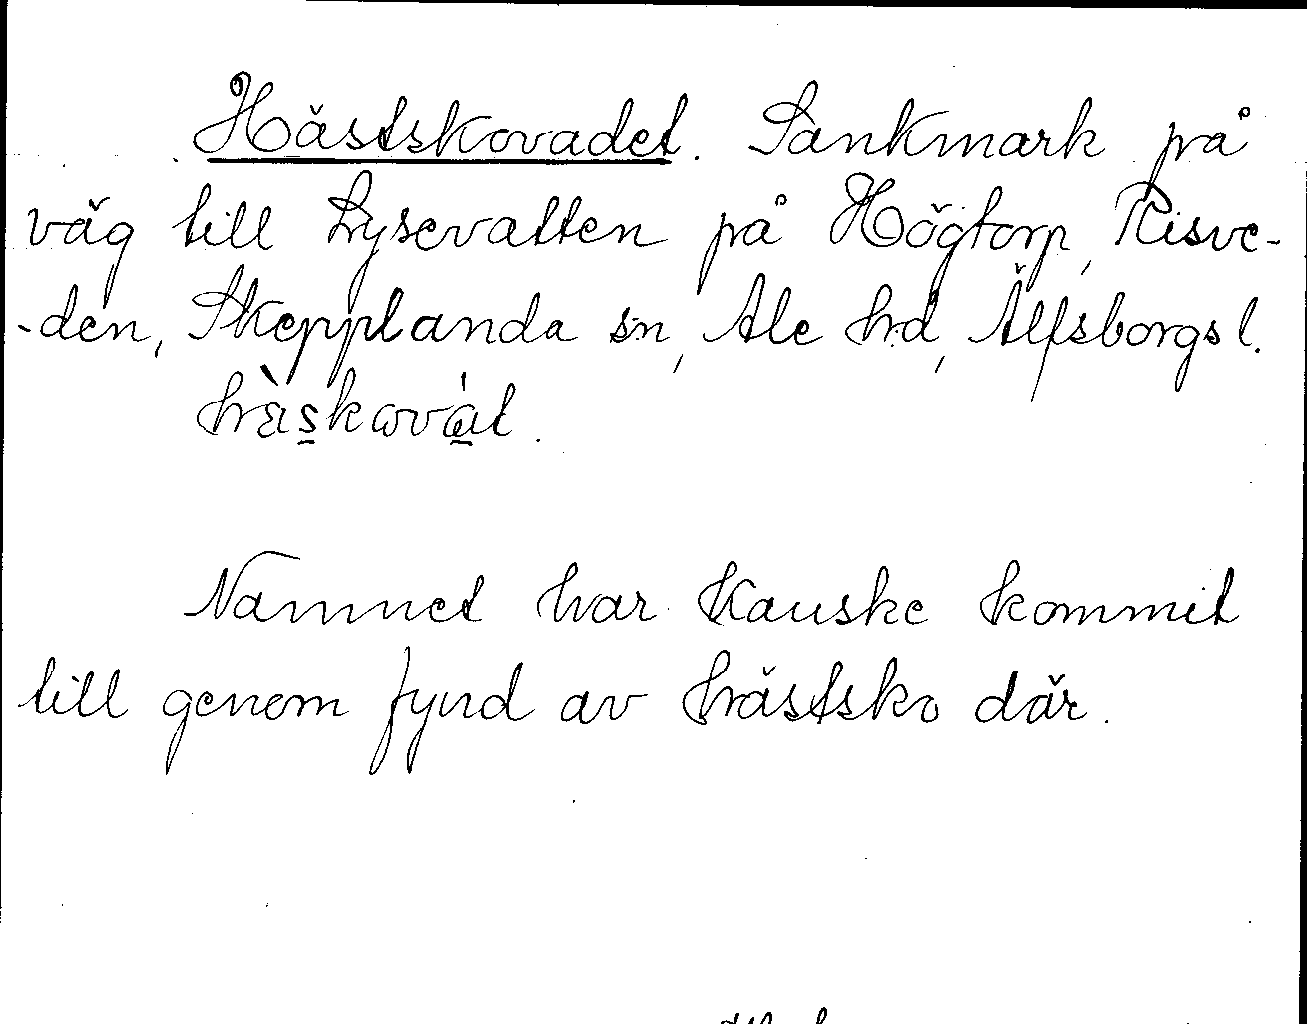 Hästskovadet. Sankmark på
väg till Lysevatten på Högtorp, Risve-
-den, Skepplanda sn, Ale hd, Älfsborgs l.
hàskωvàt.
Namnet har kanske kommit
till genom fynd av hästsko där.